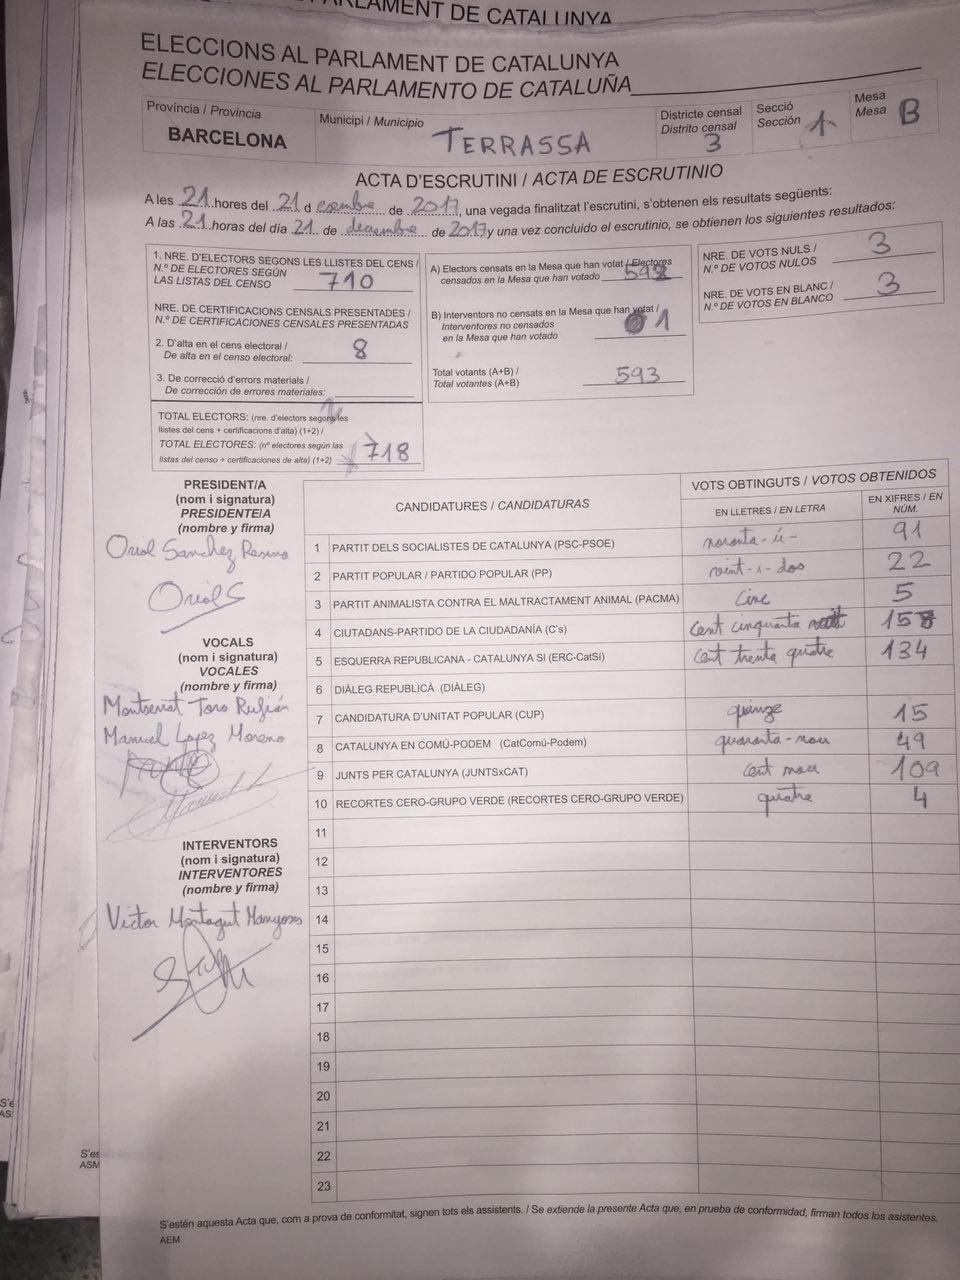 PARLAMENT DE CATALUNYA
ELECCIONS AL PARLAMENT DE CATALUNYA
ELECCIONES AL PARLAMENTO DE CATALUÑA
Província / Provincia
BARCELONA
Municipi / Municipio
TERRASSA
Districte censal
Distrito censal
3
Secció
Sección
1
Mesa
Mesa
B
ACTA D'ESCRUTINI / ACTA DE ESCRUTINIO
A les 21 hores del 21 d esembre de 2017, una vegada finalitzat l'escrutini, s'obtenen els resultats següents:
A las 21 horas del día 21 de diciembre de 2017 y una vez concluido el escrutinio, se obtienen los siguientes resultados:
1. NRE. D'ELECTORS SEGONS LES LLISTES DEL CENS /
N.º DE ELECTORES SEGÚN
LAS LISTAS DEL CENSO 710
NRE. DE CERTIFICACIONS CENSALS PRESENTADES /
N.º DE CERTIFICACIONES CENSALES PRESENTADAS
2. D'alta en el cens electoral /
De alta en el censo electoral: 8
3. De correcció d'errors materials /
De corrección de errores materiales:
TOTAL ELECTORS: (nre. d'electors segons les
llistes del cens + certificacions d'alta) (1+2) /
TOTAL ELECTORES: (nº electores según las
listas del censo + certificaciones de alta) (1+2) 718
A) Electors censats en la Mesa que han votat / Electores
censados en la Mesa que han votado 592
B) Interventors no censats en la Mesa que han votat /
Interventores no censados
en la Mesa que han votado 1
Total votants (A+B) /
Total votantes (A+B) 593
NRE. DE VOTS NULS /
N.º DE VOTOS NULOS 3
NRE. DE VOTS EN BLANC /
N.º DE VOTOS EN BLANCO 3
PRESIDENT/A
(nom i signatura)
PRESIDENTE/A
(nombre y firma)
Oriol Sanchez
Oriol S
VOCALS
(nom i signatura)
VOCALES
(nombre y firma)
Montserrat Toro Rufián
Manuel Lopez Moreno
INTERVENTORS
(nom i signatura)
INTERVENTORES
(nombre y firma)
Victor Montagut
CANDIDATURES / CANDIDATURAS
VOTS OBTINGUTS / VOTOS OBTENIDOS
EN LLETRES / EN LETRA
EN XIFRES / EN
NÚM.
1 PARTIT DELS SOCIALISTES DE CATALUNYA (PSC-PSOE) noranta-ú- 91
2 PARTIT POPULAR / PARTIDO POPULAR (PP) vint-i-dos 22
3 PARTIT ANIMALISTA CONTRA EL MALTRACTAMENT ANIMAL (PACMA) cinc 5
4 CIUTADANS-PARTIDO DE LA CIUDADANÍA (C's) cent cinquanta vuit 158
5 ESQUERRA REPUBLICANA - CATALUNYA SI (ERC-CatSí) cent trenta quatre 134
6 DIÀLEG REPUBLICÀ (DIÀLEG)
7 CANDIDATURA D'UNITAT POPULAR (CUP) quinze 15
8 CATALUNYA EN COMÚ-PODEM (CatComú-Podem) quaranta-nou 49
9 JUNTS PER CATALUNYA (JUNTSxCAT) cent nou 109
10 RECORTES CERO-GRUPO VERDE (RECORTES CERO-GRUPO VERDE) quatre 4
11
12
13
14
15
16
17
18
19
20
21
22
23
S'estén aquesta Acta que, com a prova de conformitat, signen tots els assistents. / Se extiende la presente Acta que, en prueba de conformidad, firman todos los asistentes.
AEM
S'es
ASM